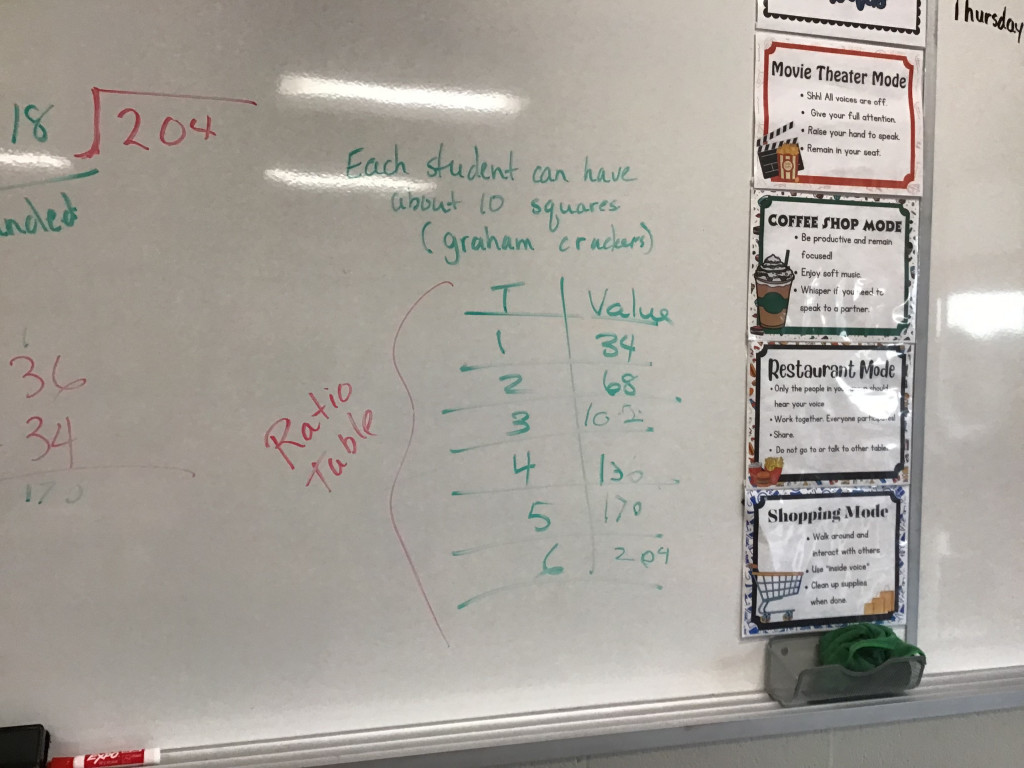 Thursday
18 204
Each student can have
about 10 squares
(graham crackers)
T Value
1 34
2 68
3 102
4 130
5 170
6 204
Ratio
Table
36
34
170
Movie Theater Mode
• Shh! All voices are off.
• Give your full attention.
• Raise your hand to speak.
• Remain in your seat.
COFFEE SHOP MODE
• Be productive and remain
focused!
• Enjoy soft music.
• Whisper if you need to
speak to a partner.
Restaurant Mode
• Only the people in your should
hear your voice
• Work together. Everyone
• Share.
• Do not go to or talk to other table.
Shopping Mode
• Walk around and
interact with others.
• Use "inside voice"
• Clean up supplies
when done.
EXPO